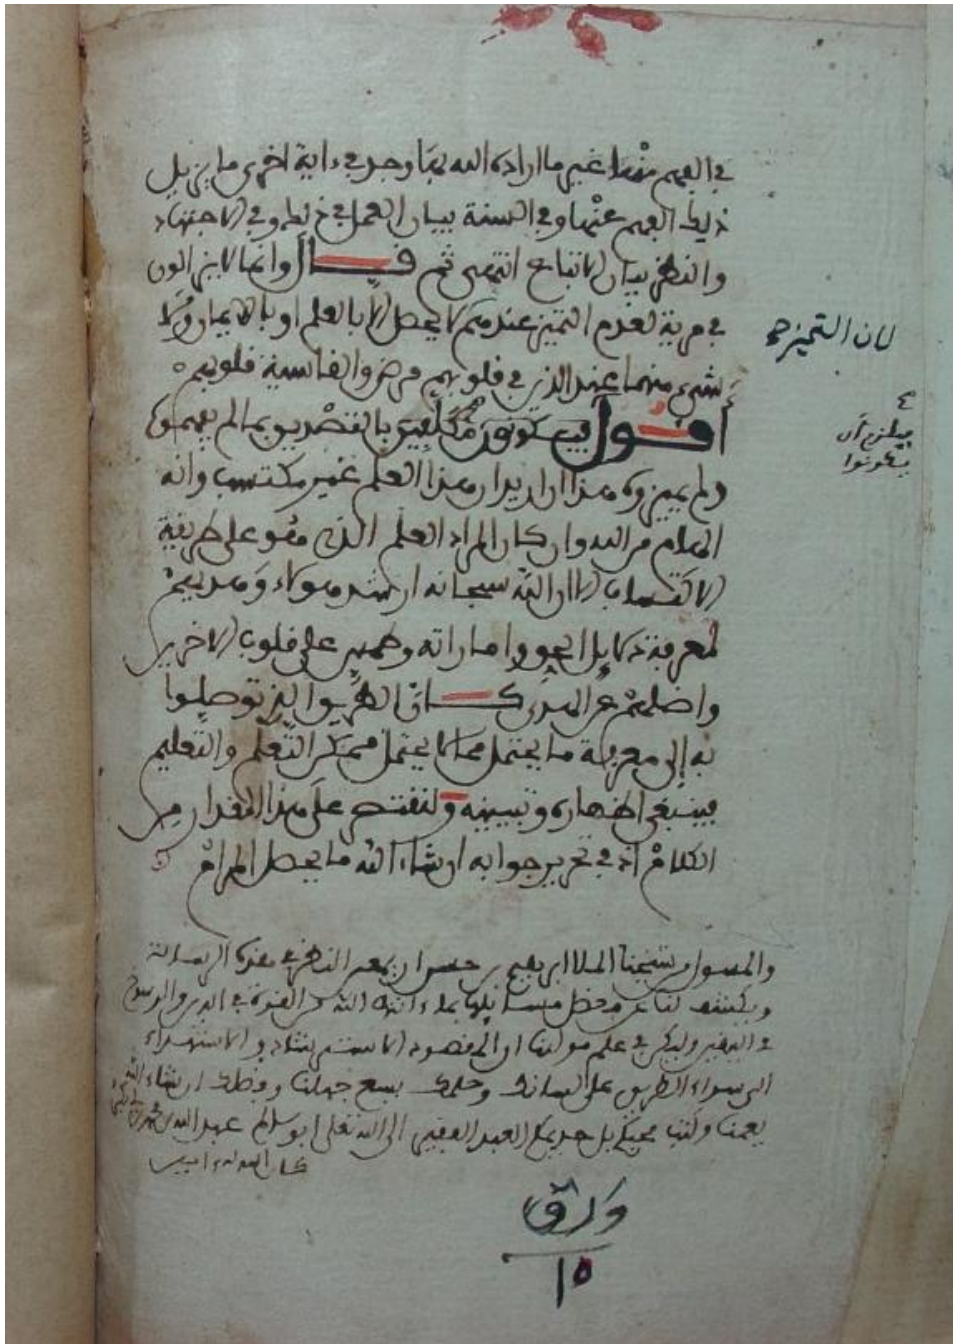 في الفهم منها غير ما اراده الله بها وجد في ءاية اخرى ما يزيل
ذلك الفهم عنها وفي السنة بيان العمل في ذلك وفي الاجتهاد
والنظر بيان الاتباع انتهى ثم قال وانها لا يزالون
في مرية لعدم التميز عندهم لا يحصل الا بالعلم او بالايمان ولا
لان التميز صح
شيء منهما عند الذين في قلوبهم مرض والقاسية قلوبهم
أقول فيكونون مكلفين بالتصديق بما لم يفهموه
فيلزم أن
يكونوا
ولم يميزوه هذا ان اريد ان هذا العلم غير مكتسب وانه
الهام من الله وان كان المراد العلم الذي هو على طريقة
الاكتساب الا ان الله سبحانه ارشد هؤلاء وهديهم
لمعرفة دلايل الحق واماراته وطمس على قلوب الاخرين
واضلهم عن الهدى كان الطريق الذي توصلوا
به إلى معرفة ما يحتمل مما لا يحتمل ممكن التعلم والتعليم
فينبغي اظهاره وتبيينه ولنقتصر على هذا المقدار من
الكلام اذ في تحرير جوابه ان شاء الله ما يحصل المرام
والمسول من شيخنا الملا ابراهيم بن حسن ان يمعن النظر في هذه الرسالة
ويكشف لنا عن معضل مسائلها بما ءاتاه الله من القوة في الدين والرسوخ
في اليقين وليكن في علم مولانا ان المقصود الاسترشاد والاستهداء
الى سواء الطريق على لسانك وحلمك يسع جهلنا وفضلك ان شاء الله
يعمنا وكتب محبكم بل خديمكم العبد الفقير الى الله تعلى ابو سالم عبد الله بن محمد
كان الله له ءامين
ورق
١٥